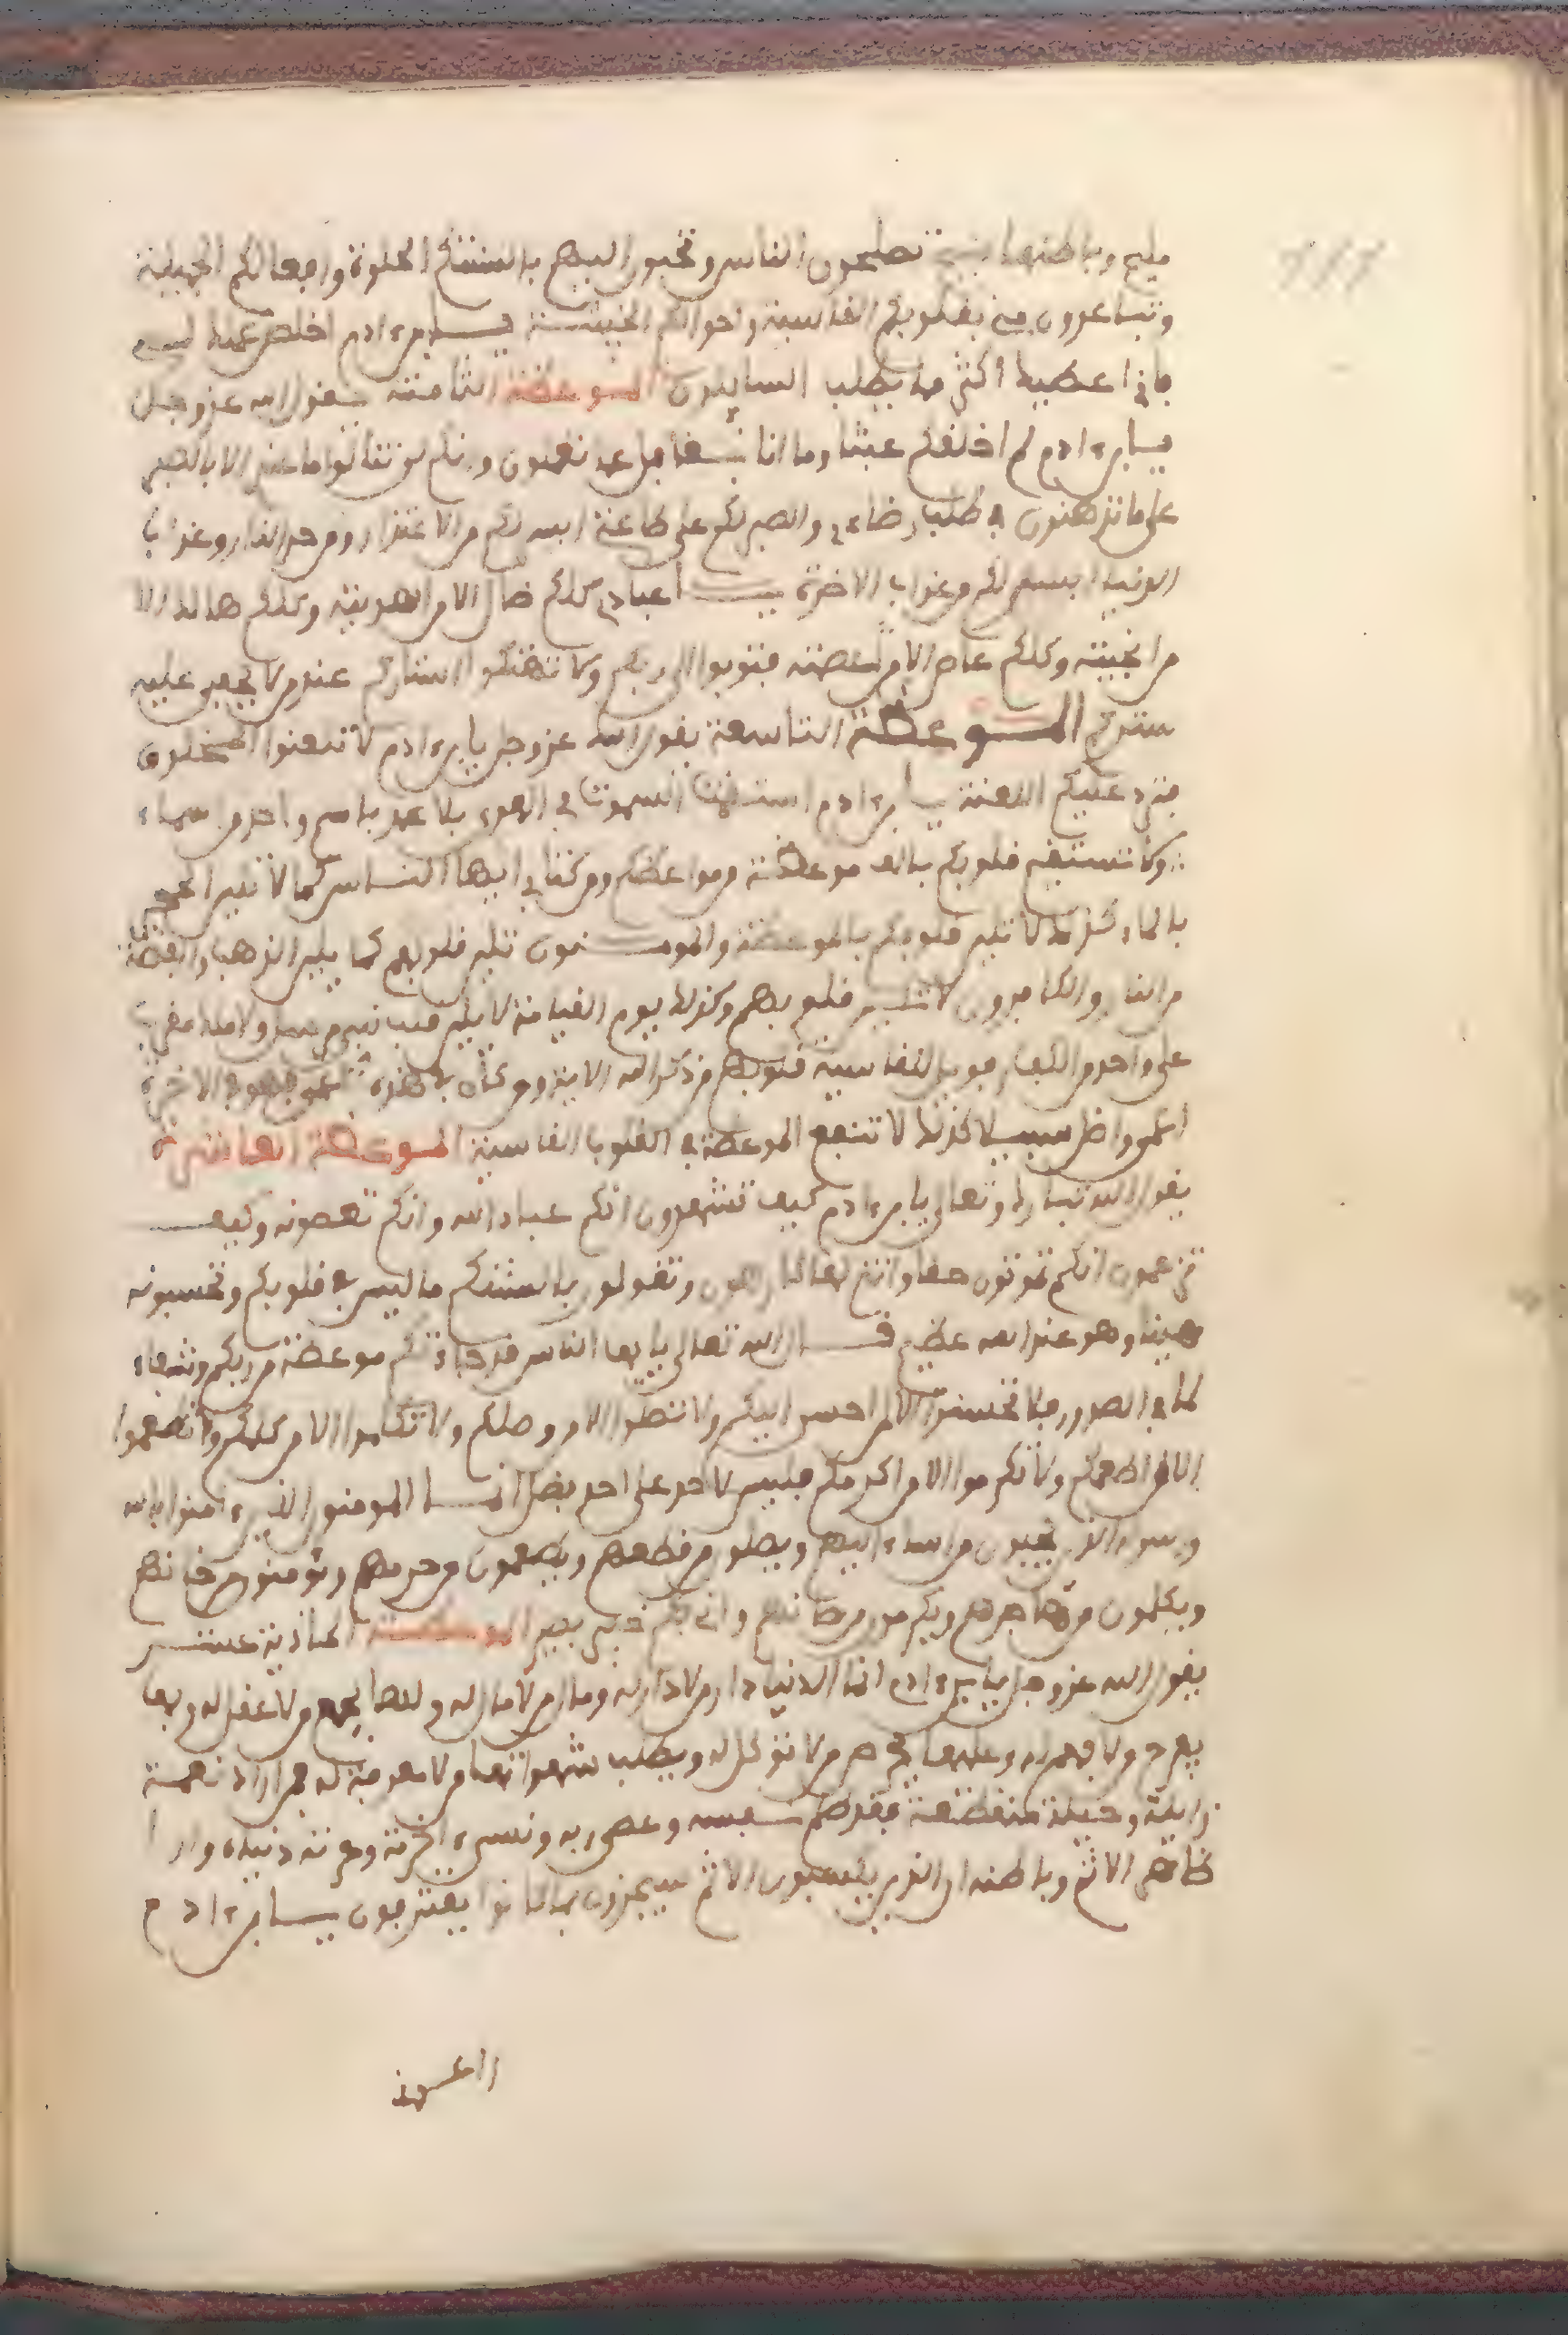 مليح وباطنها تصلحون الناس وتحببون اليهم بالسنتكم الحلوة وافعالكم الجميلة
وتباعدون مني بقلوبكم القاسية واحوالكم الخبيثة يابن ءادم اخلص عملك لي
فاني اعطيك اكثر مما يطلب السايلون الموعظة الثامنة يقول الله عز وجل
يابن ءادم لم اخلقكم عبثا وما انا بغافل عما تعملون وانكم لن تنالوا ما عندي الا بالصبر
على ما تكرهون في طلب رضاءي والصبر لكم على طاعتي ايسر لكم من الاعتذار ومن حر النار وعذاب
الدنيا ايسر لكم من عذاب الاخرة يا عبادي كلكم ضال الا من هديته وكلكم هالك الا
من انجيته وكلكم عاص الا من عصمته فتوبوا الى ربكم ولا تهتكوا استاركم عند من لا يخفى عليه
سركم الموعظة التاسعة يقول الله عز وجل يابن ءادم لا تلعنوا المخلوق
فترد عليكم اللعنة يابن ءادم استقامت السموت في الهوى بلا عمد باسم واحد من اسماء
ولا تستقيم قلوبكم بالف موعظة من مواعظكم ومن كتابي ايها الناس كما لا يلين الحجر
بالماء كذلك لا تلين قلوبكم بالموعظة والمومنون تلين قلوبهم كما يلين الذهب والفضة
من النار والكافرون لا تلين قلوبهم وكذلك يوم القيامة لا يلين قلب
على واحد من الكفار فويل للقاسية قلوبهم من ذكر الله الاية ومن كان في هذه اعمى فهو في الاخرة
اعمى واضل سبيلا كذلك لا تنفع الموعظة في القلوب القاسية الموعظة العاشرة
يقول الله تبارك وتعالى يابن ءادم كيف تشهدون انكم عباد الله وانكم تعصونه وكيف
تزعمون انكم تموتون حقا وانتم لها كارهون وتقولون بالسنتكم ما ليس في قلوبكم وتحسبونه
هينا وهو عند الله عظيم قال الله تعالى يايها الناس قد جاءتكم موعظة من ربكم وشفاء
لما في الصدور فلا تحسنوا الا لمن احسن اليكم ولا تصلوا الا من وصلكم ولا تكلموا الا من كلمكم ولا تطعموا
الا من اطعمكم ولا تكرموا الا من اكرمكم فليس لاحد على احد فضل انما المومنون الذين ءامنوا بالله
ورسوله الذين يحسنون من اساء اليهم ويصلون من قطعهم ويطعمون من حرمهم ويومنون من خانهم
ويكلمون من هاجرهم ويكرمون من اهانهم واني بكم خبير بصير الموعظة الحادية عشر
يقول الله عز وجل يابن ءادم انما الدنيا دار من لا دار له ومال من لا مال له ولها يجمع من لا عقل له وبها
يفرح من لا فهم له وعليها يحرص من لا توكل له ويطلب شهواتها من لا معرفة له فمن اراد نعمة
زايلة وحيلة منقطعة فقد ظلم نفسه وعصى ربه ونسي ءاخرته وغرته دنياه واراد
ظاهر الاثم وباطنه ان الذين يكسبون الاثم سيجزون بما كانوا يقترفون يابن ءادم
راعوني